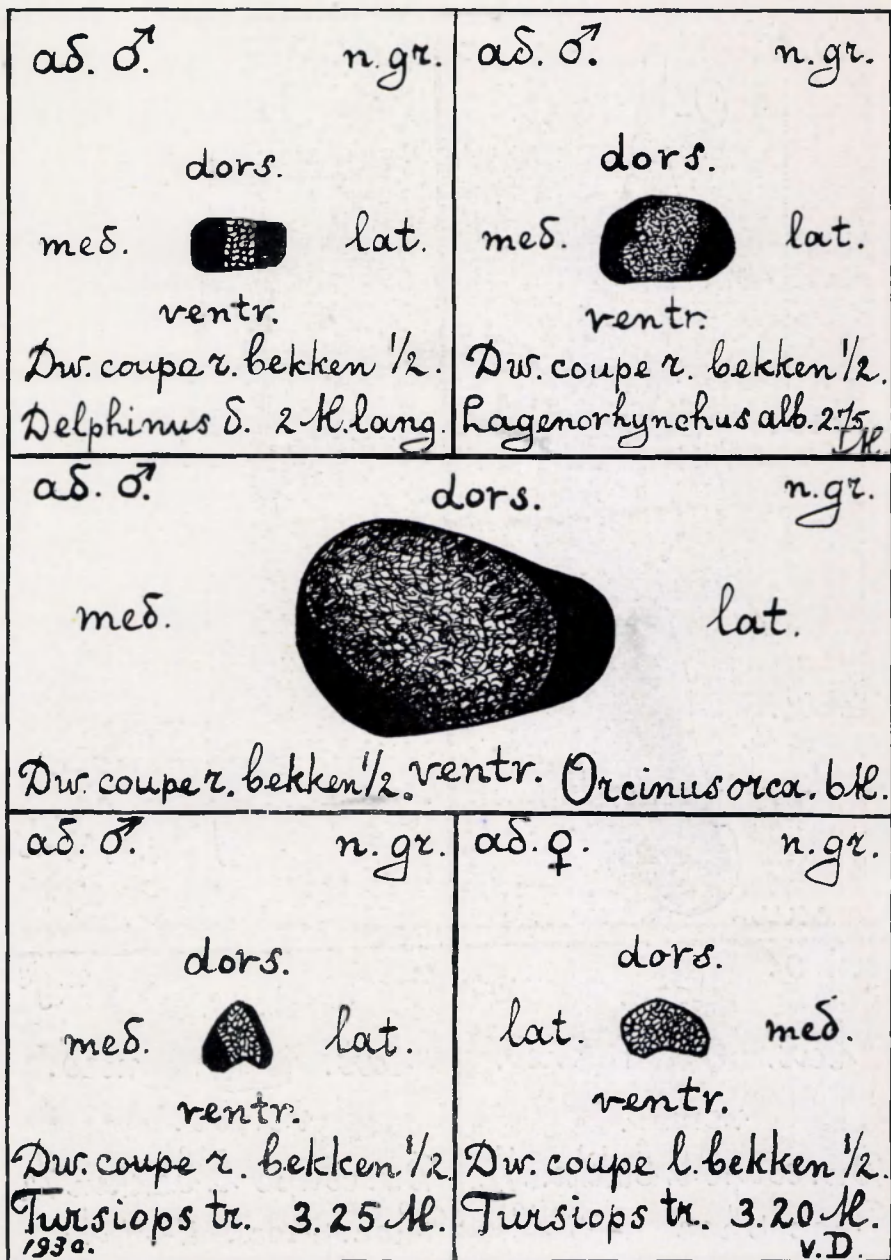 ad. ♂. n. gr.
dors.
med. lat.
ventr.
Dw. coupe r. bekken 1/2.
Delphinus d. 2 M. lang.
ad. ♂. n. gr.
dors.
med. lat.
ventr.
Dw. coupe r. bekken 1/2.
Lagenorhynchus alb. 2.75
M.
ad. ♂. dors. n. gr.
med. lat.
Dw. coupe r. bekken 1/2. ventr. Orcinus orca. 6 M.
ad. ♂. n. gr.
dors.
med. lat.
ventr.
Dw. coupe r. bekken 1/2
Tursiops tr. 3.25 M.
ad. ♀. n. gr.
dors.
lat. med.
ventr.
Dw. coupe l. bekken 1/2.
Tursiops tr. 3.20 M.
v. D.